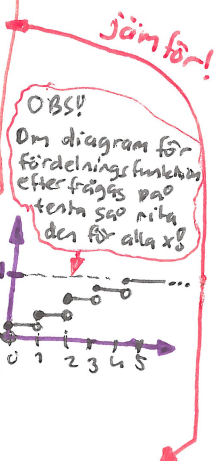 jämför!
OBS!
Om diagram för
fördelningsfunktion
efterfrågas på
tenta så rita
den för alla x!
...
0 1 2 3 4 5